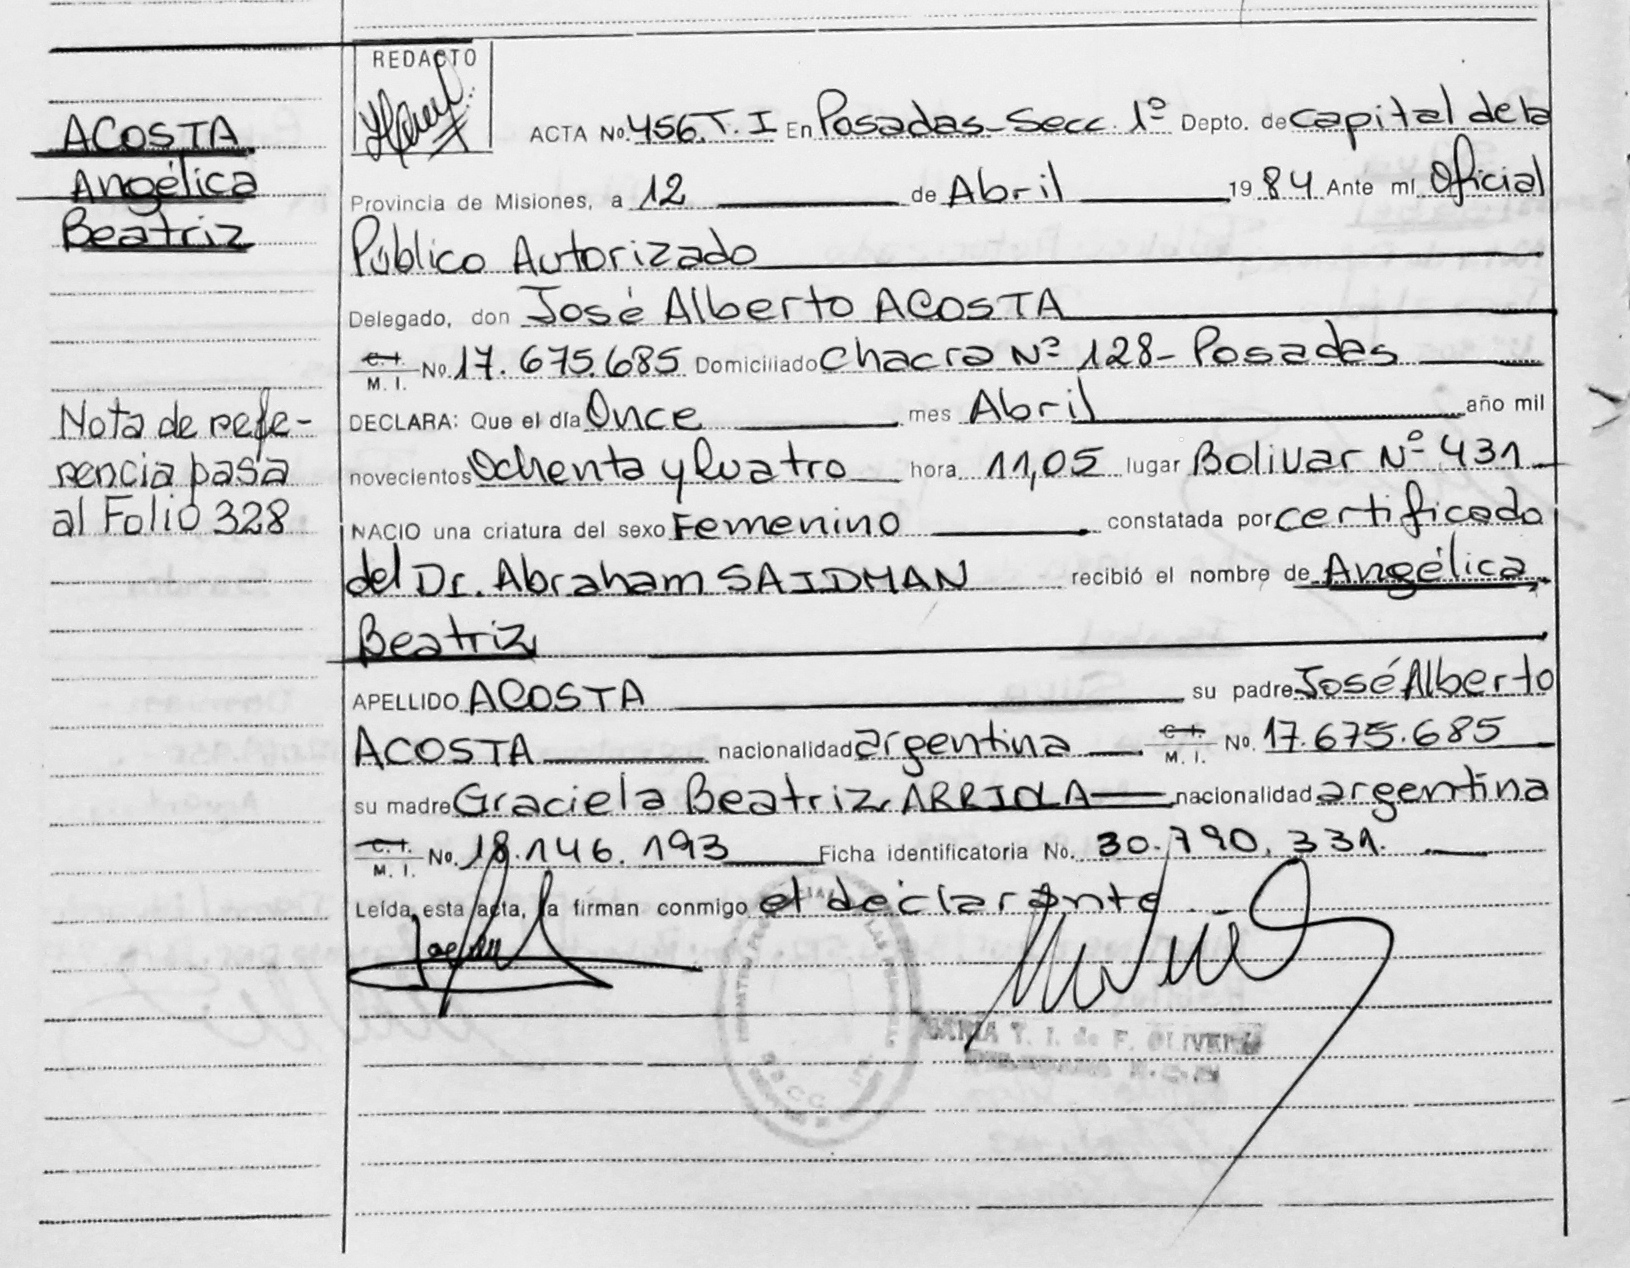 REDACTO
ACOSTA
Angélica
Beatriz
Nota de refe-
rencia pasa
al Folio 328
ACTA No. 456. T. I En Posadas - Secc. 1º Depto. de capital de la
Provincia de Misiones, a 12 de Abril 1984 Ante mí Oficial
Público Autorizado
Delegado, don José Alberto ACOSTA
C. I. M. I. No. 17.675.685 Domiciliado Chacra Nº 128 - Posadas
DECLARA: Que el día Once mes Abril año mil
novecientos Ochenta y Cuatro hora 11,05 lugar Bolivar Nº 431
NACIO una criatura del sexo Femenino constatada por certificado
del Dr. Abraham SAIDMAN recibió el nombre de Angélica
Beatriz
APELLIDO ACOSTA su padre José Alberto
ACOSTA nacionalidad argentina C. I. M. I. No. 17.675.685
su madre Graciela Beatriz ARRIOLA nacionalidad argentina
C. I. M. I. No. 18.146.193 Ficha identificatoria No. 30.790.331.
Leída esta acta, la firman conmigo el declarante
T. I. de F. OLIVEIRA